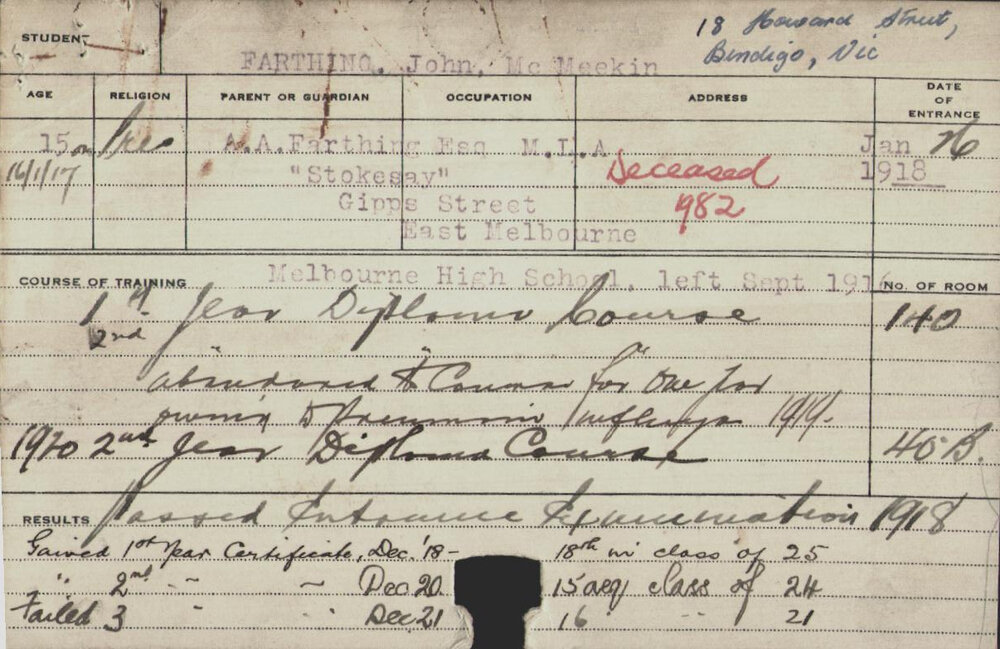 18 Howard Street,
Bendigo, Vic
STUDENT
FARTHING, John, Mc Meekin
AGE RELIGION PARENT OR GUARDIAN OCCUPATION ADDRESS DATE OF ENTRANCE
15 on A.A.Farthing Esq M.L.A Jan
16/1/17 "Stokesay" Deceased 1918
Gipps Street 1982
East Melbourne
COURSE OF TRAINING Melbourne High School, left Sept 1916 NO. OF ROOM
1st Year Diploma Course 140
2nd
abandoned Course for one year
owing to Pneumonic Influenza 1919.
1920 2nd Year Diploma Course 40B.
RESULTS Passed Entrance Examination 1918
Gained 1st Year Certificate, Dec. '18 - 18th in class of 25
" 2nd " " Dec 20 15 aeq class of 24
Failed 3 " " Dec 21 16 " " 21